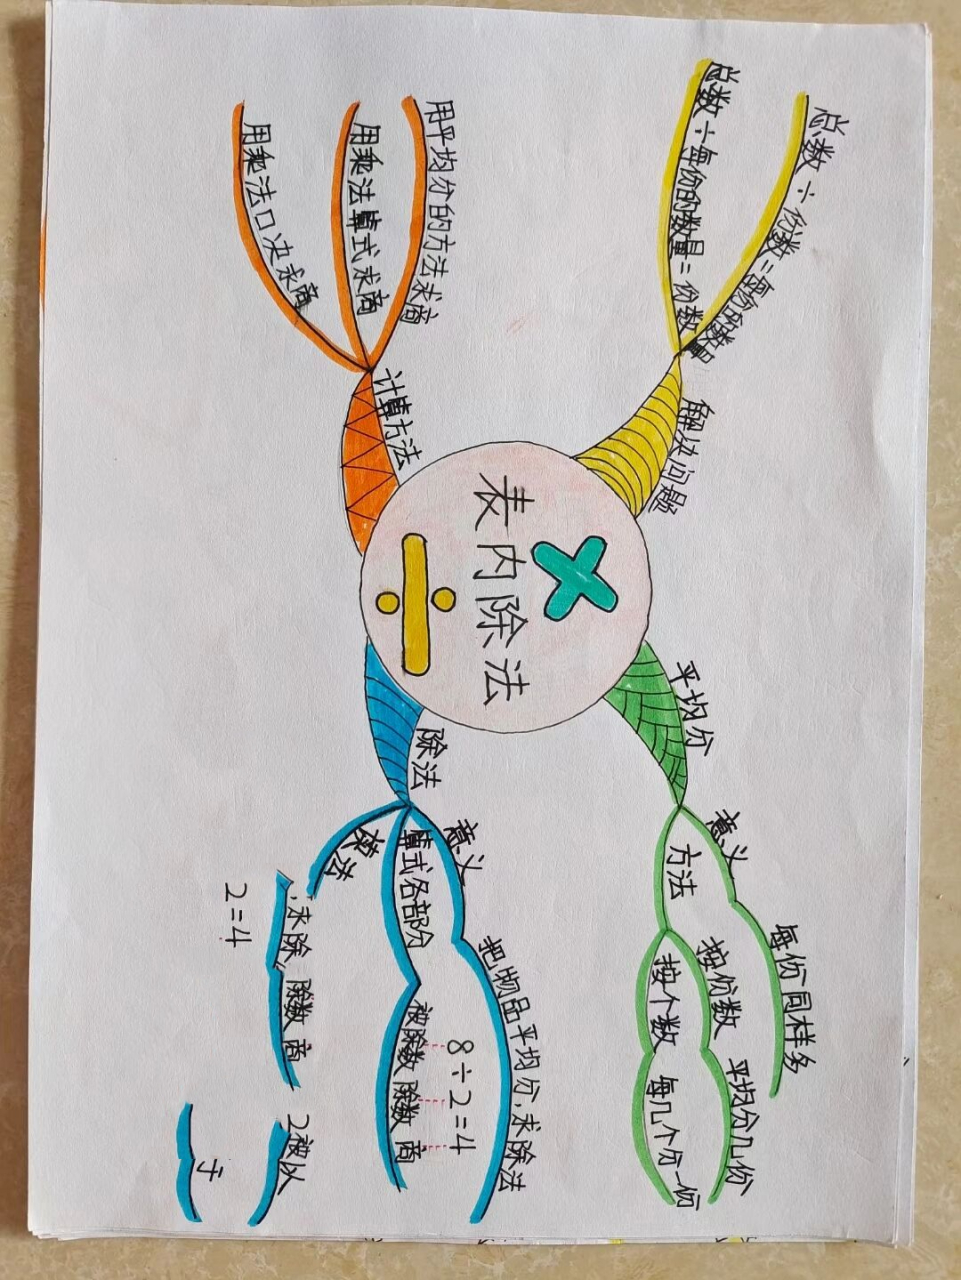 表内除法
解决问题
总数÷份数=每份的数量
总数÷每份的数量=份数
平均分
意义
每份同样多
方法
按份数
平均分几份
按个数
每几个分一份
计算方法
用平均分的方法求商
用乘法算式求商
用乘法口决求商
除法
意义
把物品平均分,求除法
算式各部份
8÷2=4
被除数 除数 商
求除 除数 商
2=4
2被以
于